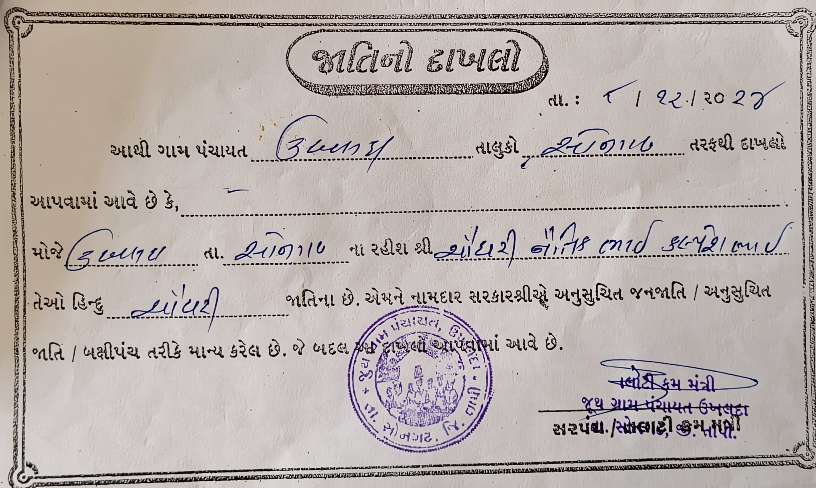 જાતિનો દાખલો
તા. : ૮ / ૧૨ / ૨૦૨૪
આથી ગામ પંચાયત ઉખલદા તાલુકો સોનગઢ તરફથી દાખલો
આપવામાં આવે છે કે,
મોજે ઉખલદા તા. સોનગઢ ના રહીશ શ્રી ચૌધરી નૈતિકભાઈ કલ્પેશભાઈ
તેઓ હિન્દુ ચૌધરી જાતિના છે. એમને નામદાર સરકારશ્રીએ અનુસુચિત જનજાતિ / અનુસુચિત
જાતિ / બક્ષીપંચ તરીકે માન્ય કરેલ છે. જે બદલ આ દાખલો આપવામાં આવે છે.
જુથ ગ્રામ પંચાયત, ઉખલદા
તા. સોનગઢ, જિ. તાપી
તલાટી કમ મંત્રી
જૂથ ગ્રામ પંચાયત ઉખલદા
તા. સોનગઢ, જી. તાપી.
સરપંચ / તલાટી કમ મંત્રી